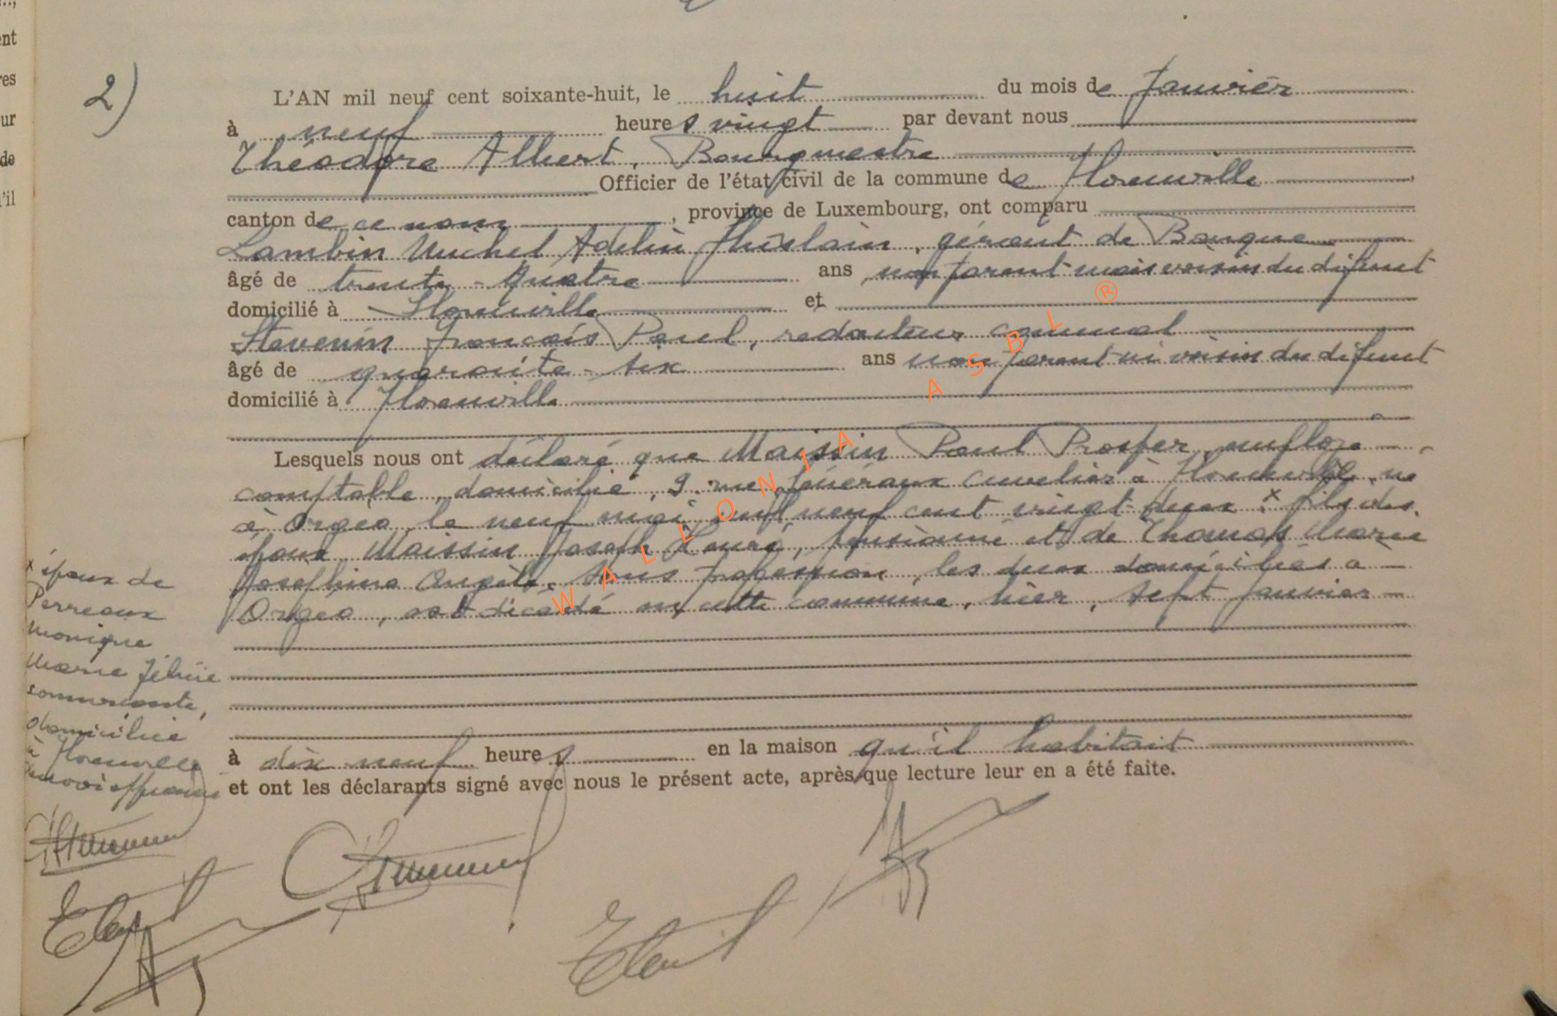 2)
L'AN mil neuf cent soixante-huit, le huit du mois de Janvier
à neuf heures vingt par devant nous
Théodore Albert, Bourgmestre
Officier de l'état civil de la commune de Florenville
canton de ce nom, province de Luxembourg, ont comparu
Lambin Michel Adelin Ghislain, gérant de Banque
âgé de trente-quatre ans non parent mais voisin du défunt
domicilié à Florenville et
Stevenin François Paul, rédacteur communal
âgé de quarante-six ans non parent ni voisin du défunt
domicilié à Florenville
Lesquels nous ont déclaré que Maissin Paul Prosper, employé
comptable, domicilié, 9, rue Généraux Cuvelier à Florenville, né
à Orgeo, le neuf mai mil neuf cent vingt-deux x fils des
époux Maissin Joseph, pensionné et de Thomas Marie
Josephine Angèle, sans profession, les deux domiciliés à
Orgeo, est décédé en cette commune, hier, sept janvier
à dix-neuf heures en la maison qu'il habitait
et ont les déclarants signé avec nous le présent acte, après que lecture leur en a été faite.
x époux de
Perreaux
Monique
Marie
commerçante,
domiciliée
à Florenville
WALLONIA ASBL ®